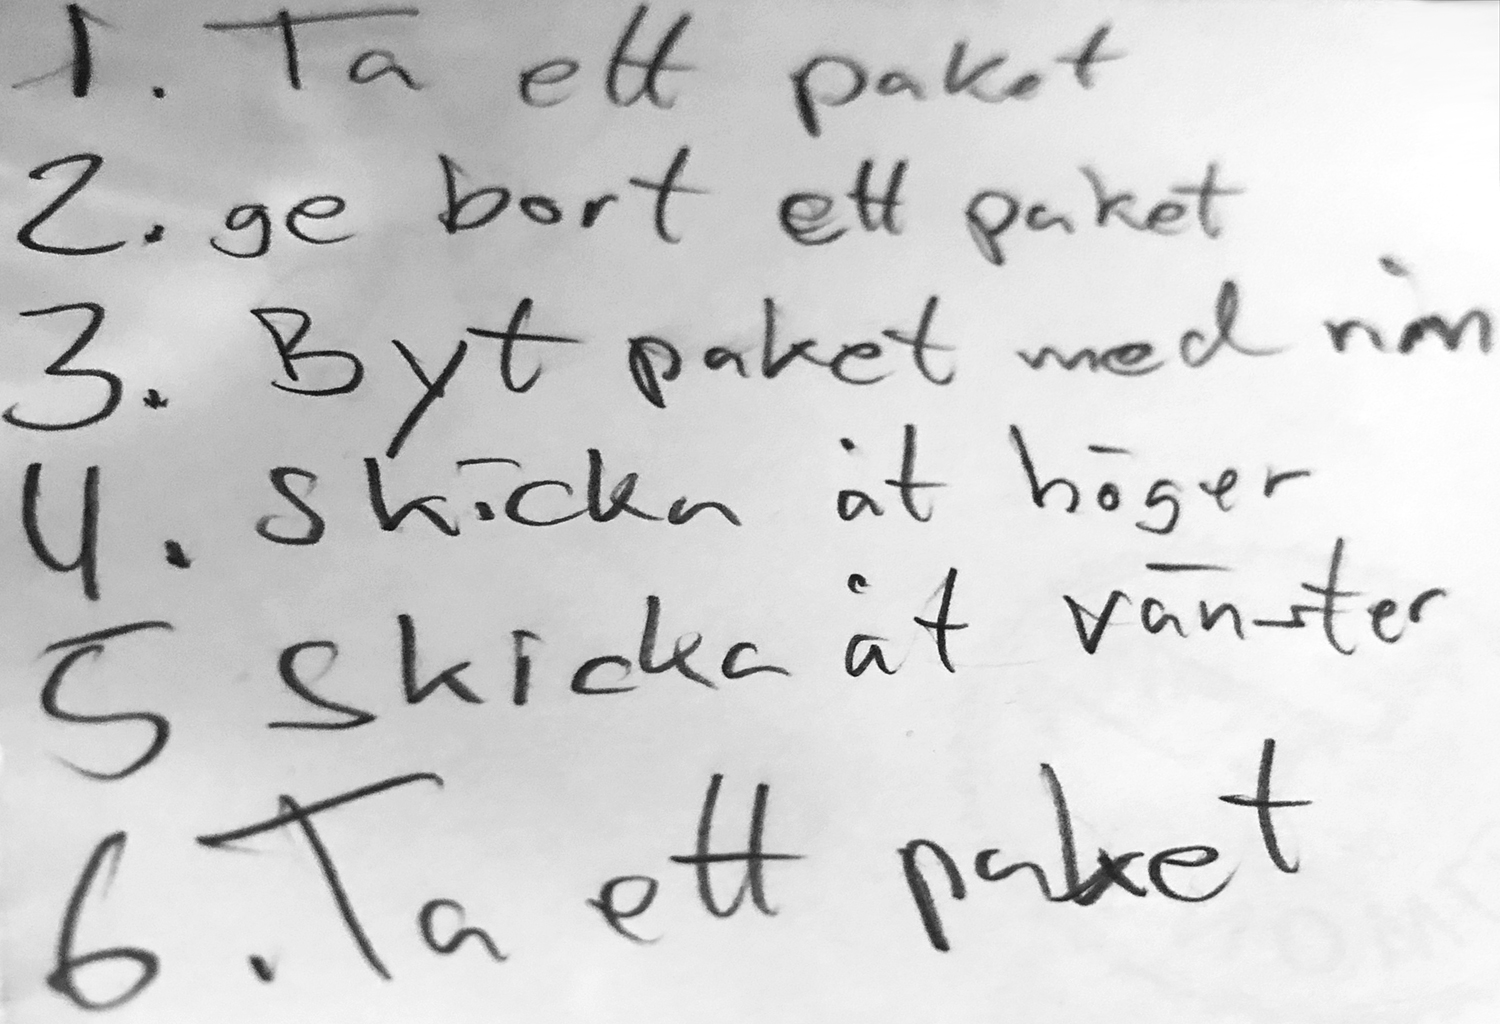 1. Ta ett paket
2. ge bort ett paket
3. Byt paket med nån
4. Skicka åt höger
5 Skicka åt vänster
6. Ta ett paket